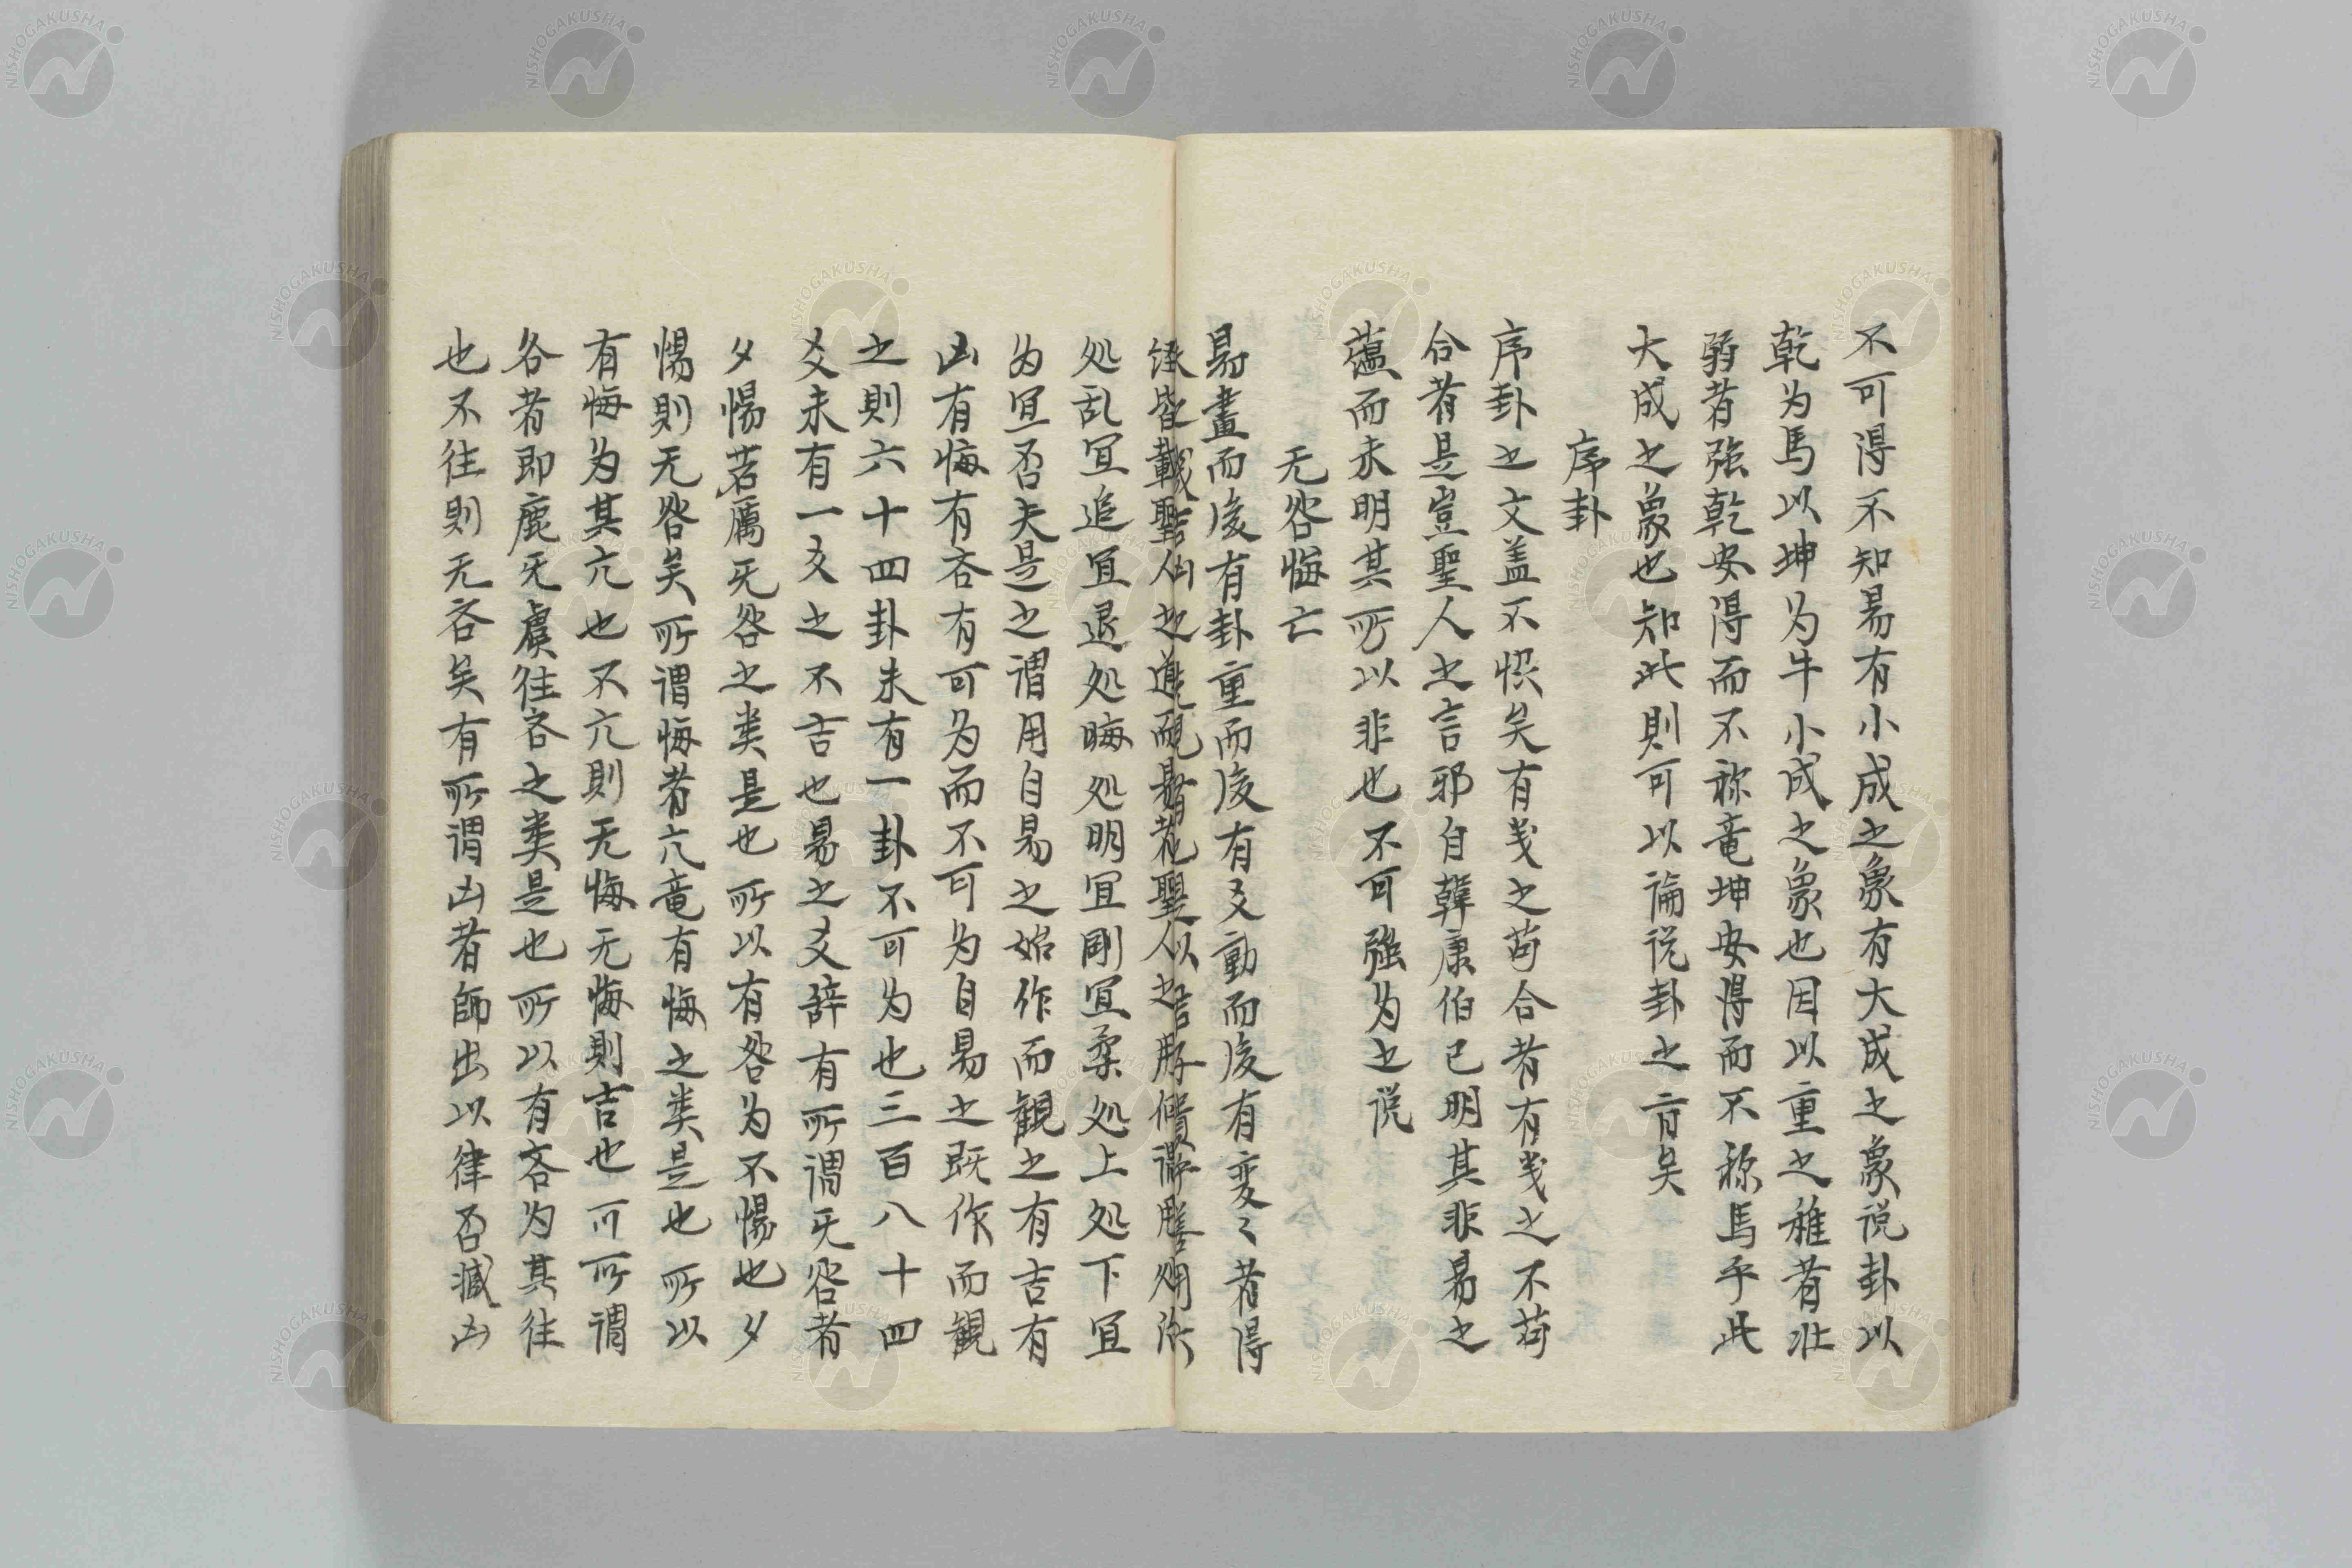 不可得不知易有小成之象有大成之象说卦以
乾为馬以坤为牛小成之象也因以重之稚者壮
弱者强乾安得而不称竜坤安得而不称馬乎此
大成之象也知此則可以論说卦之㫖矣
序卦
序卦之文盖不惬矣有戋之苟合者有戋之不苟
合者是豈聖人之言邪自韓康伯已明其非易之
蕴而未明其所以非也不可强为之说
无咎悔亡
易畫而后有卦重而后有爻動而后有変〻者得
处乱宜追宜退处晦处明宜剛宜柔处上处下宜
为宜否夫是之谓用自易之始作而観之有吉有
凶有悔有吝有可为而不可为自易之既作而観
之則六十四卦未有一卦不可为也三百八十四
爻未有一爻之不吉也易之爻辞有所谓无咎者
夕惕若厲无咎之类是也所以有咎为不惕也夕
惕則无咎矣所谓悔者亢竜有悔之类是也所以
有悔为其亢也不亢則无悔无悔則吉也所谓
吝者即鹿无虞往吝之类是也所以有吝为其往
也不往則无吝矣有所谓凶者師出以律否臧凶
NISHOGAKUSHA